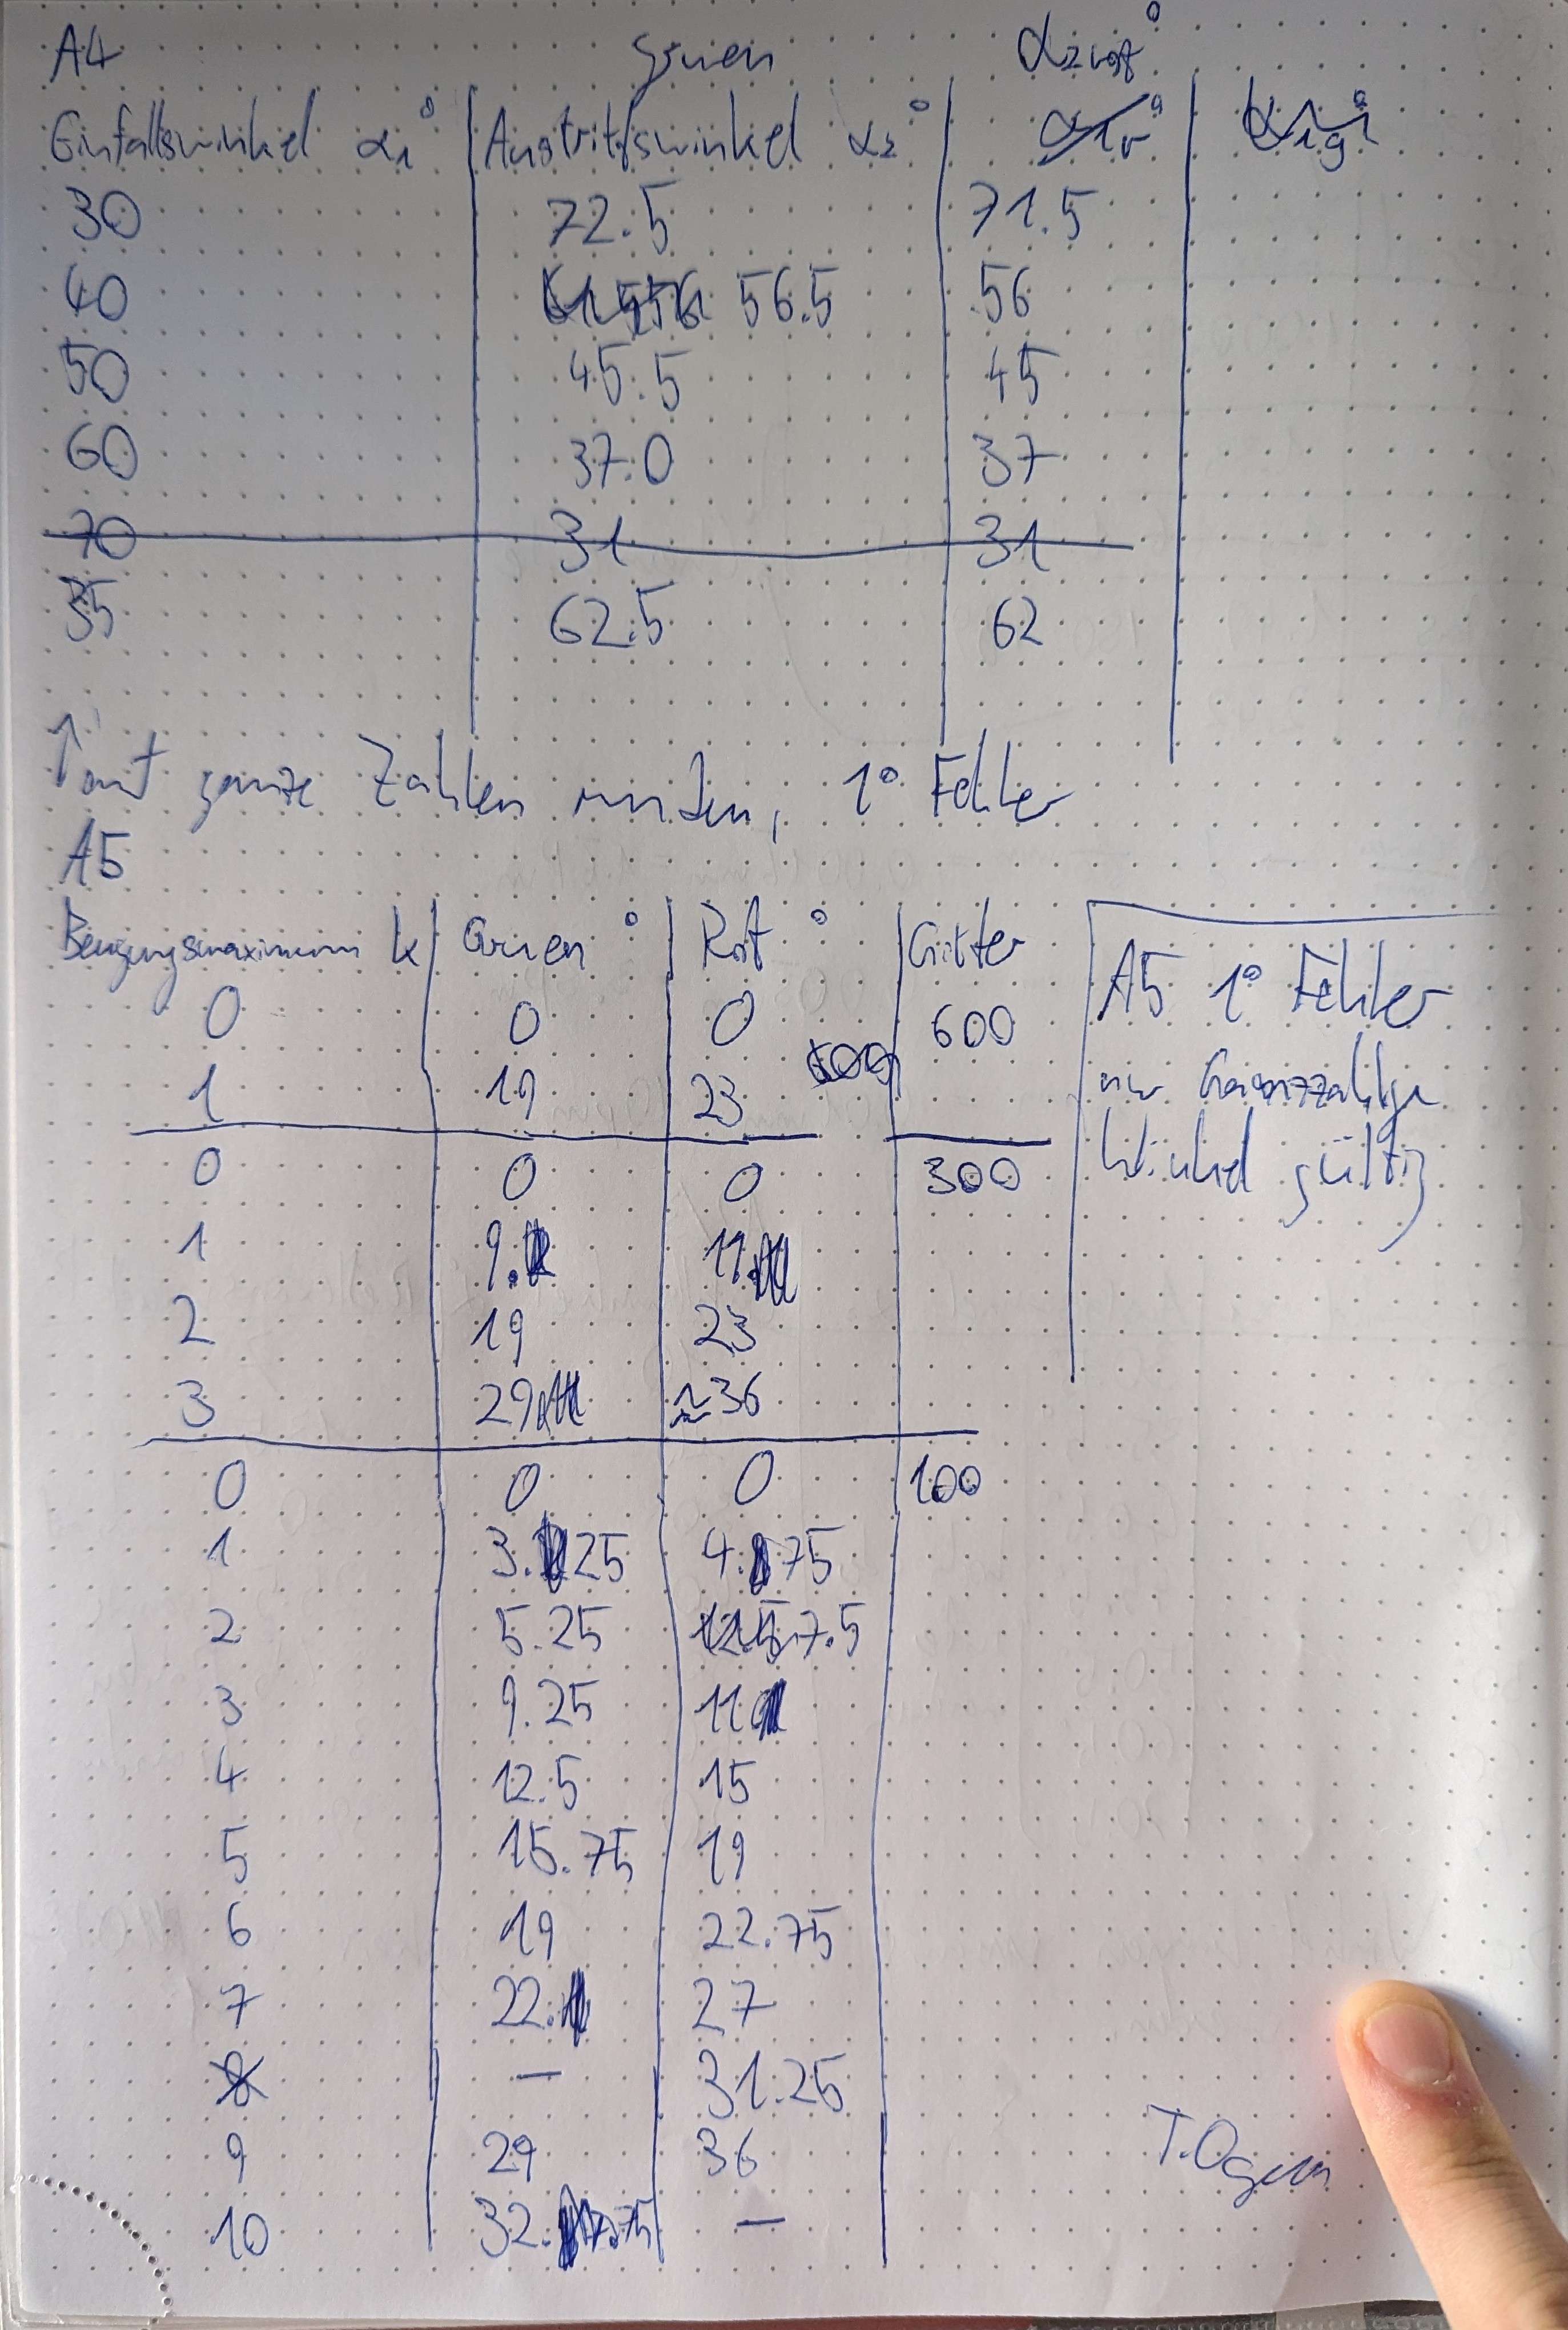 A4 gruen α₂rot°
Einfallswinkel α₁° Austrittswinkel α₂°
30 72.5 71.5
40 56.5 56
50 45.5 45
60 37.0 37
70 31 31
35 62.5 62
↑ auf ganze Zahlen runden, 1° Fehler
A5
Beugungsmaximum k Gruen ° Rot ° Gitter
0 0 0 600
1 19 23
0 0 0 300
1 9. 11.
2 19 23
3 29 ≈36
0 0 0 100
1 3.25 4.75
2 5.25 7.5
3 9.25 11
4 12.5 15
5 15.75 19
6 19 22.75
7 22. 27
8 — 31.25
9 29 36
10 32.75 —
A5 1° Fehler
nur Gannzzahlige
Winkel gültig